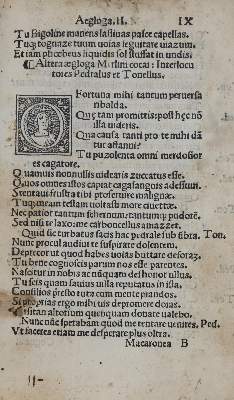 Aegloga. II. IX
Tu Frigoline manens lassinas pasce capellas.
Tuqȝ tognaze tuum voias seguitare viazum.
Et iam phœbeus liquidis sol stuffat in undis.
Altera ægloga Merlini cocai: Interlocu
tores Pedralus et Tonellus.
Fortuna mihi tantum perversa
ribalda.
Quę tam promittis: post hęc non
illa videris.
Qua causa tanti pro te mihi dā
tur affanni?
Tu puzolenta omni merdosior
es cagatore.
Quamuis nonnullis videaris zuccatus esse.
Quos omnes istos capiat cagasanguis adessum.
Stentaui frustra tibi proferire malignæ.
Tuque meam testam voluisti more ciuettæ.
Nec patior tantum schernum: tantumqȝ pudorē.
Sed nisi te laxo: me carboncellus amazzet.
Quid sic turbatus facis hac pedrale sub fibra. Ton.
Nunc procul audiui te suspirare dolentem.
Deprecor ut quod habes voias buttare desoraz.
Tu bene cognoscis paruin nos esse parentes.
Nascitur in nobis ac nūquam del honor ullus.
Tu scis quam sauius uilla reputatus in ista.
Consilios presto tuta cum mente prandos.
Si proprias ergo mihi vis depromere doias.
Assitan altorium quenquam donare valebo.
Nunc nūc sperabam quod me tentare venires. Ped.
Ut faceres etiam me desperare plus oltra.
Macaronea B